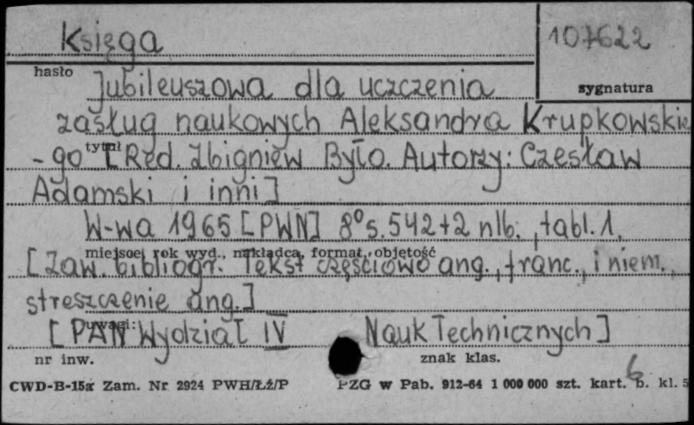 Księga
107622
hasło
sygnatura
Jubileuszowa dla uczczenia
zasług naukowych Aleksandra Krupkowskie
-go tytuł [Red. Zbigniew Było. Autorzy: Czesław
Adamski i inni]
W-wa 1965 [PWN] 8° s. 542+2 nlb., tabl. 1.
miejsce, rok wyd., nakładca, format, objętość
[Zaw. bibliogr. Tekst częściowo ang., franc., i niem.,
streszczenie ang.]
uwagi:
[PAN Wydział IV Nauk Technicznych]
nr inw.
znak klas.
6
CWD-B-15a Zam. Nr 2924 PWH/Łź/P
PZG w Pab. 912-64 1 000 000 szt. kart. b. kl. 5